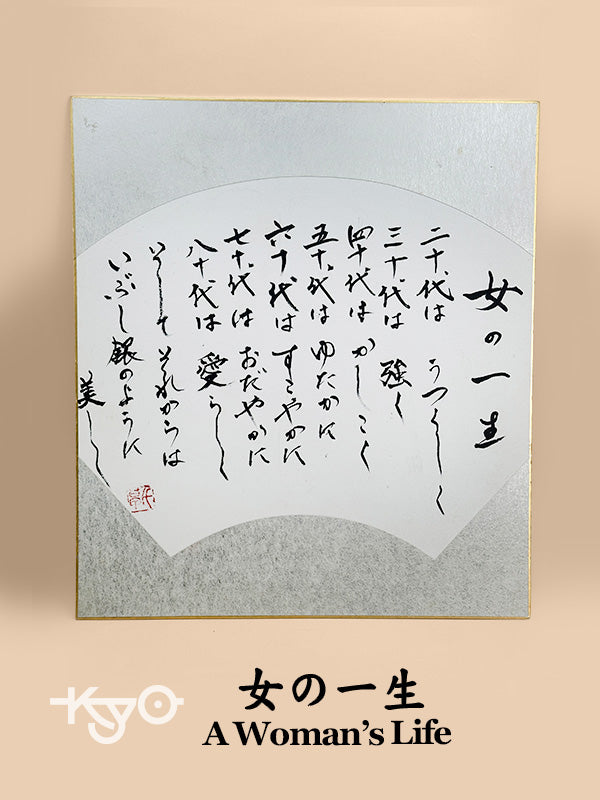 女の一生
二十代は うつくしく
三十代は 強く
四十代は かしこく
五十代は ゆたかに
六十代は すこやかに
七十代は おだやかに
八十代は 愛らしく
そして それからは
いぶし銀のように
美しく
Kyo
女の一生
A Woman's Life